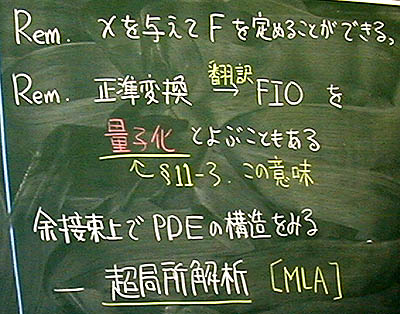 Rem. χを与えて F を定めることができる。
翻訳
Rem. 正準変換 → FIO を
量子化 とよぶこともある
↖ §11-3. この意味
余接束上で PDE の構造をみる
— 超局所解析 [MLA]